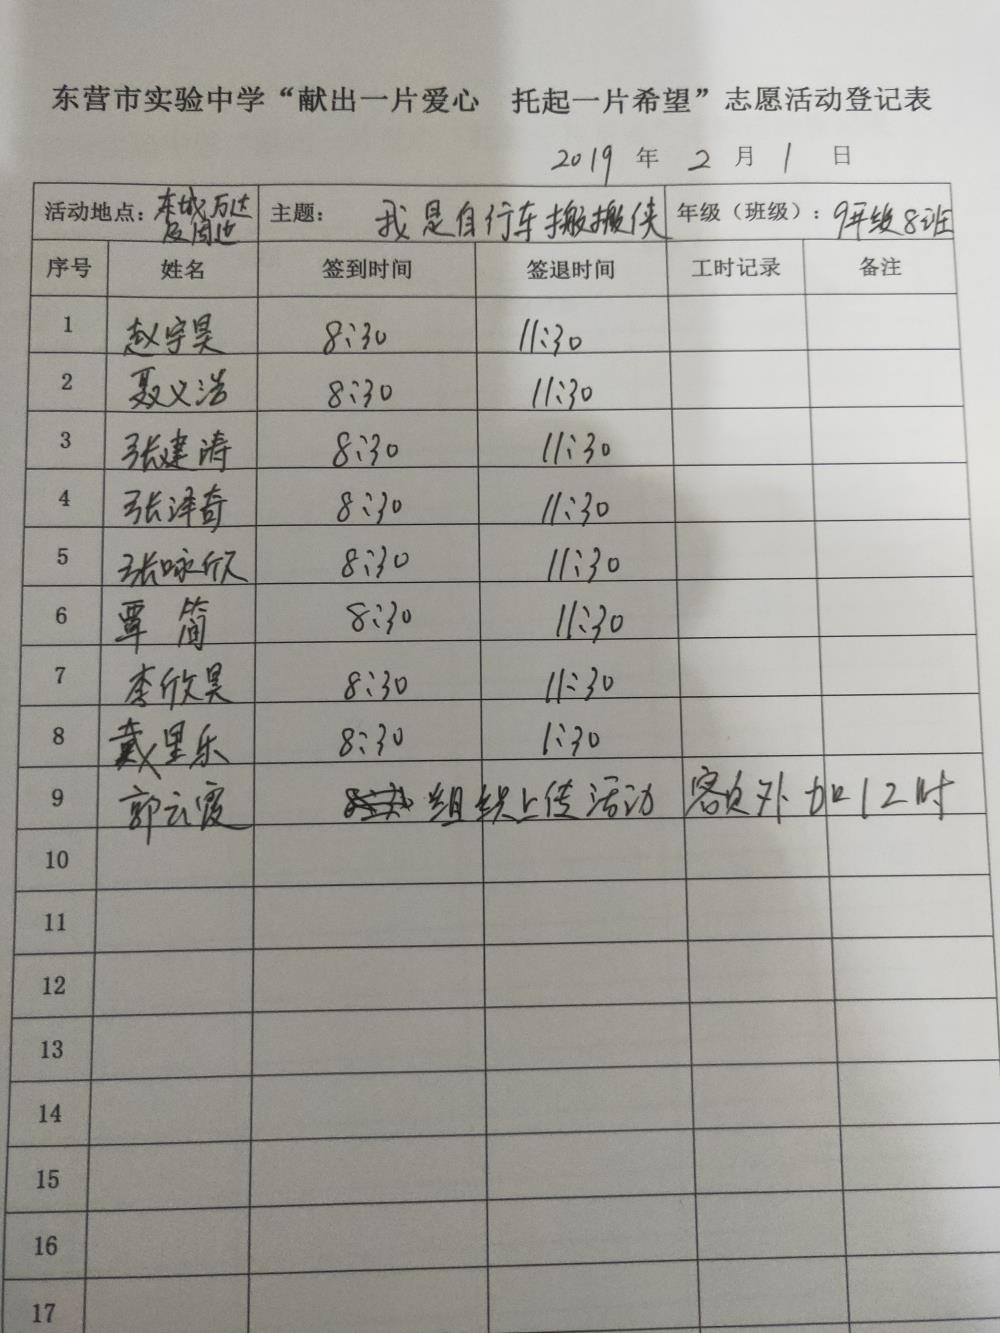 东营市实验中学“献出一片爱心 托起一片希望”志愿活动登记表
2019 年 2 月 1 日
活动地点：东城万达及周边 主题： 我是自行车搬搬侠 年级（班级）：9年级8班
序号 姓名 签到时间 签退时间 工时记录 备注
1 赵宇昊 8:30 11:30
2 聂义浩 8:30 11:30
3 张建涛 8:30 11:30
4 张泽奇 8:30 11:30
5 张咏欣 8:30 11:30
6 覃简 8:30 11:30
7 李欣昊 8:30 11:30
8 戴里乐 8:30 1:30
9 郭云霞 组织上传活动 额外加12时
10
11
12
13
14
15
16
17